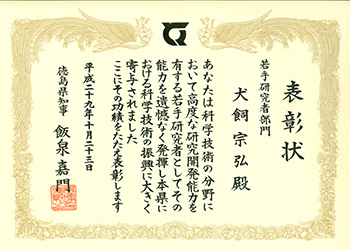 表彰状
若手研究者部門
犬飼宗弘殿
あなたは科学技術の分野に
おいて高度な研究開発能力を
有する若手研究者としてその
能力を遺憾なく発揮し本県に
おける科学技術の振興に大きく
寄与されました
ここにその功績をたたえ表彰します
平成二十九年十月二十三日
徳島県知事 飯泉嘉門